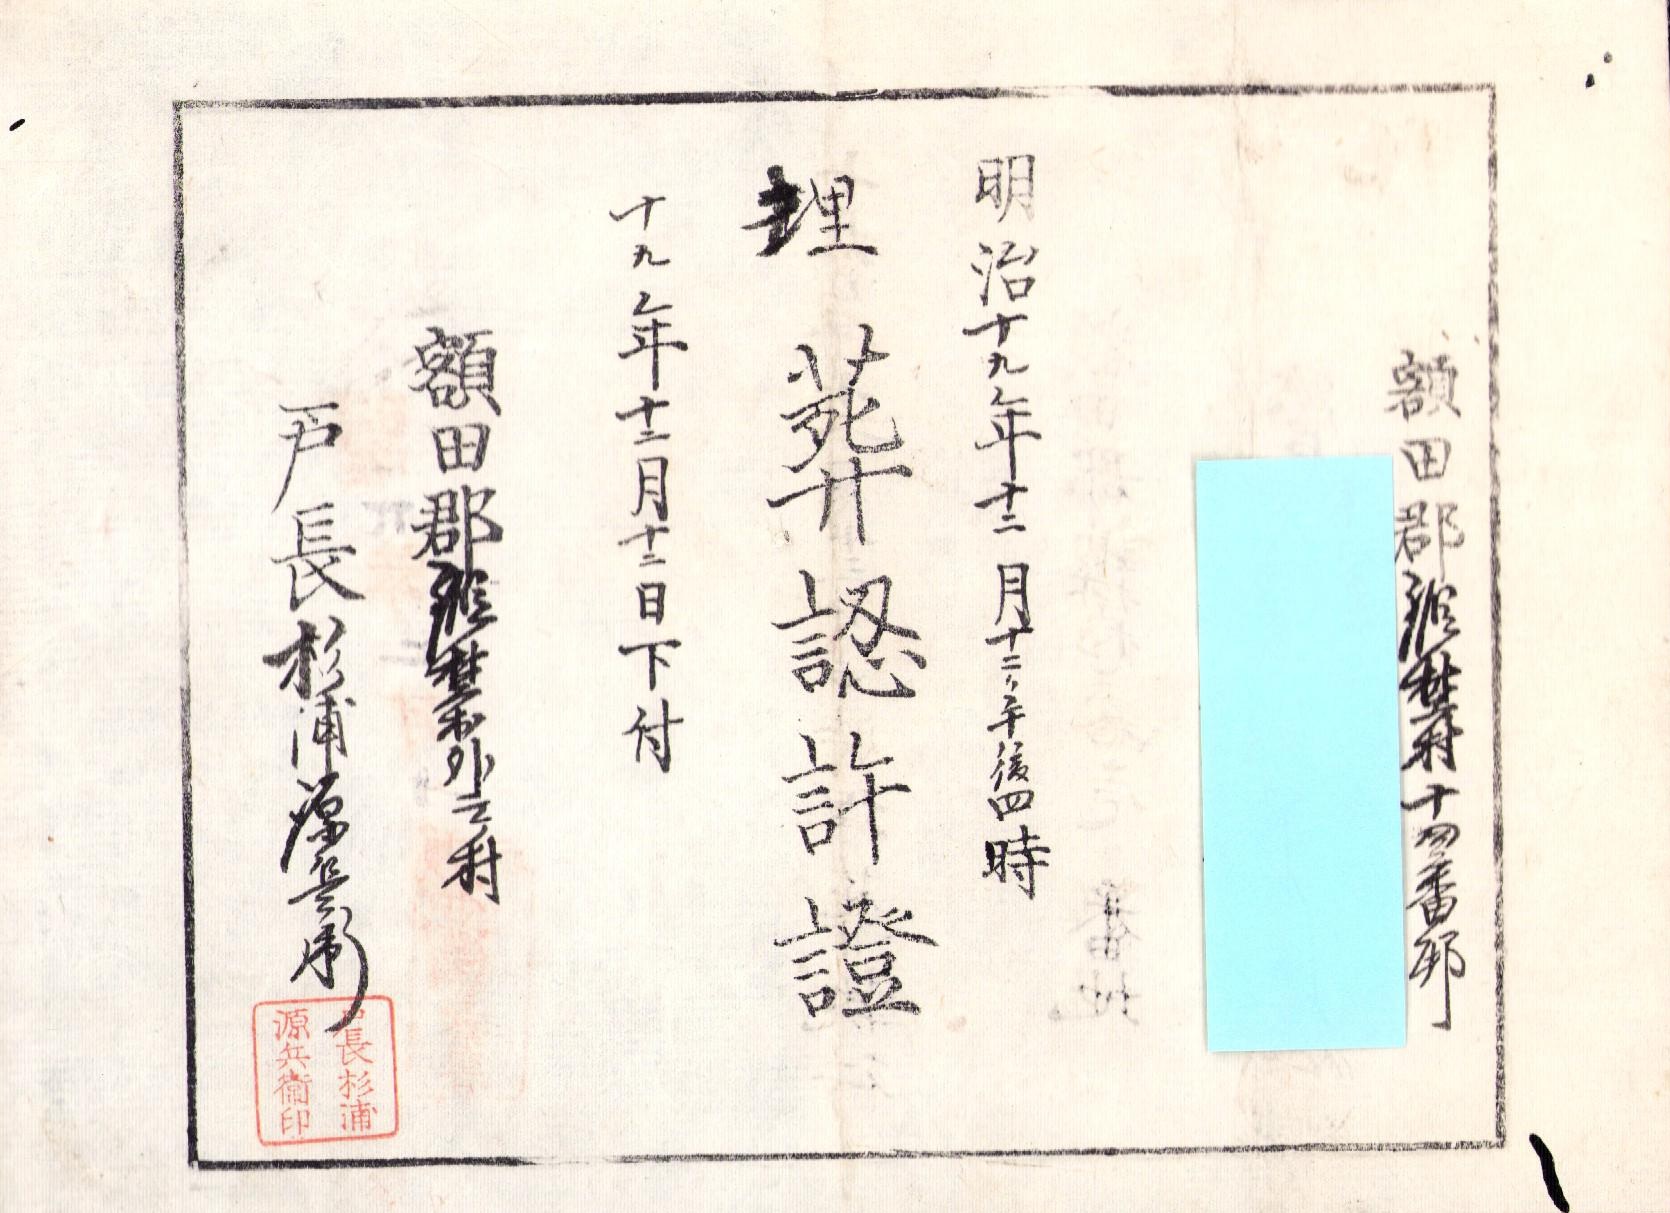 額田郡
十四番邸
明治十九年十二月十二日午後四時
埋葬認許證
十九年十二月十二日下付
額田郡
外三ヶ村
戸長杉浦源兵衛
戸長杉浦
源兵衞印